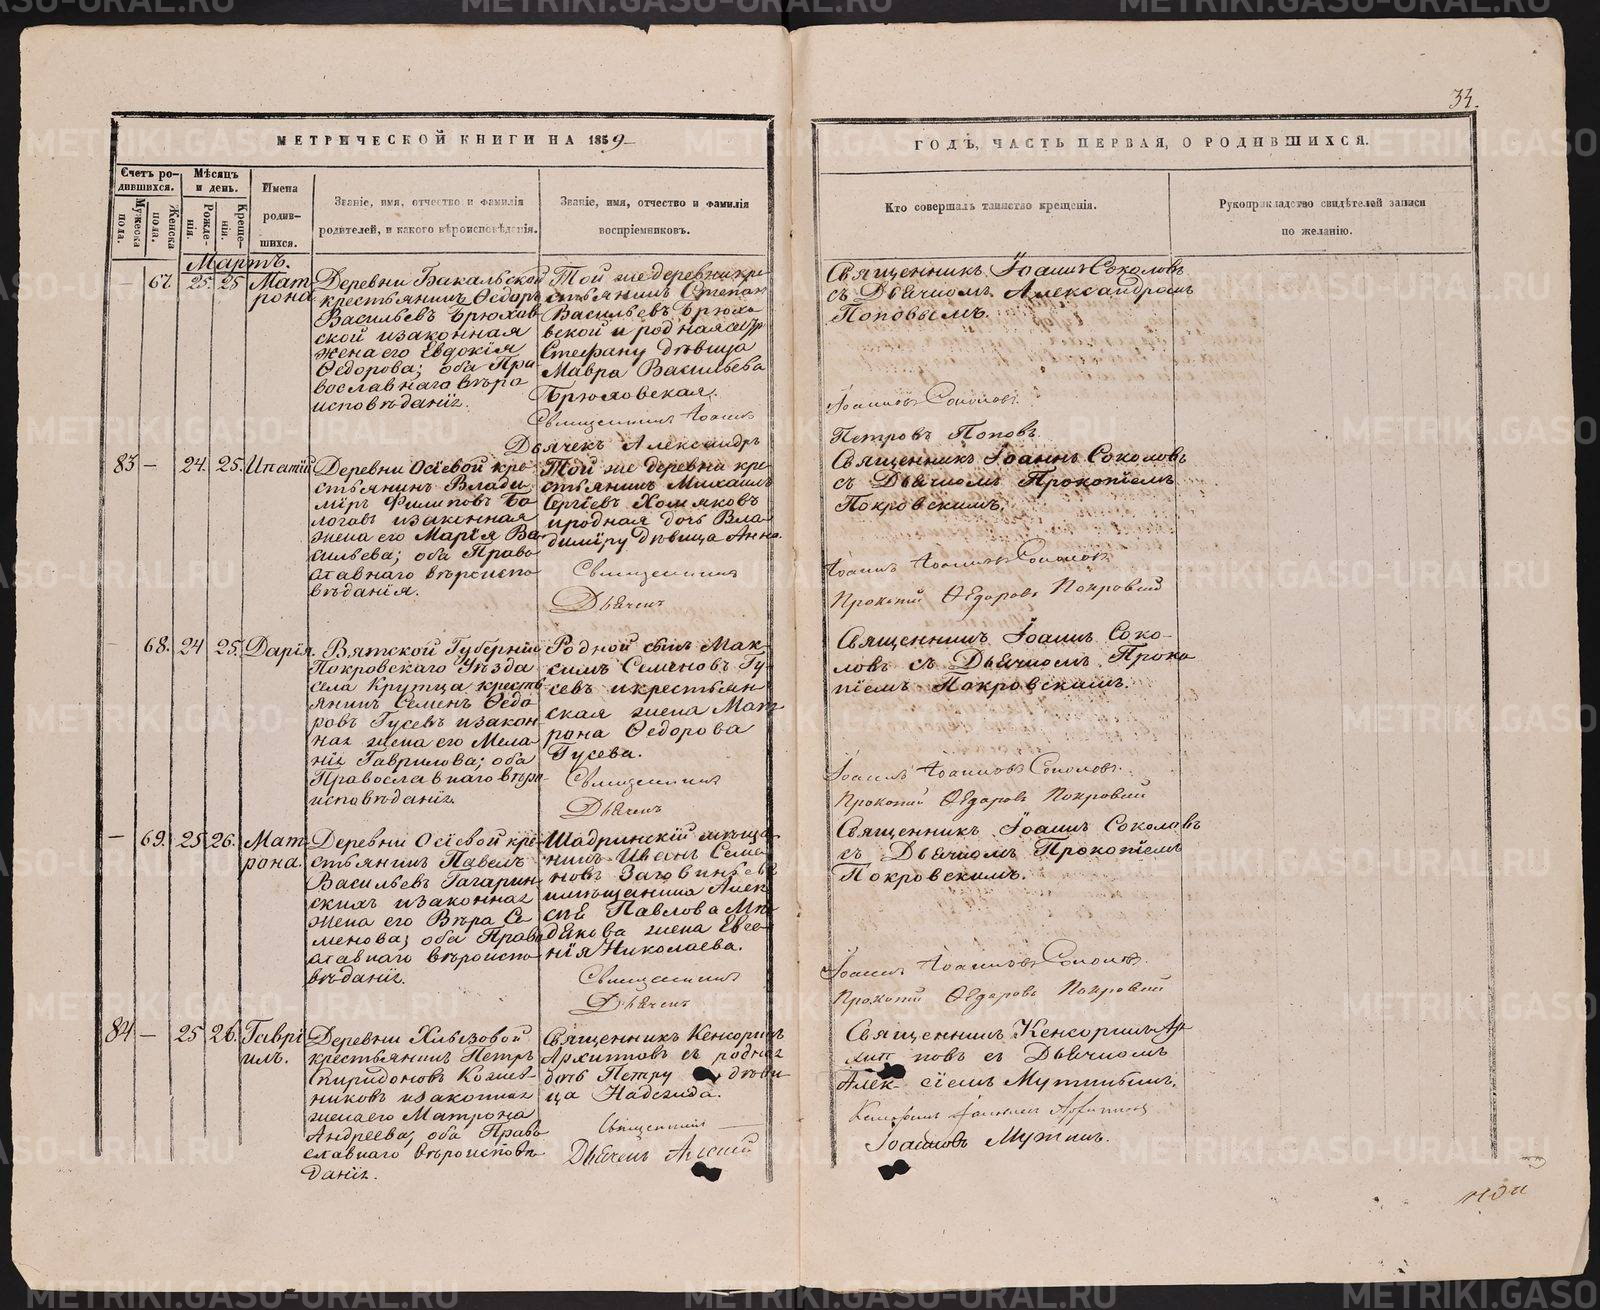 34.
МЕТРИЧЕСКОЙ КНИГИ НА 1859
ГОДЪ, ЧАСТЬ ПЕРВАЯ, О РОДИВШИХСЯ.
Счетъ родившихся.
Мужеска пола.
Женска пола.
Мѣсяцъ и день.
Рожденія.
Крещенія.
Имена родившихся.
Званіе, имя, отчество и фамилія
родителей, и какого вѣроисповѣданія.
Званіе, имя, отчество и фамилія
воспріемниковъ.
Кто совершалъ таинство крещенія.
Рукоприкладство свидѣтелей записи
по желанію.
Мартъ.
— 67. 25. 25. Мат
рона
Деревни Бакальской
крестьянинъ Ѳедоръ
Васильевъ Брюхов
ской и законная
жена его Евдокія
Ѳедорова; оба Пра
вославнаго вѣро
исповѣданія.
Той же деревни кре
стьянинъ Стефан
Васильевъ Брюхо
вской и родная
Стефану дѣвица
Мавра Васильева
Брюховская.
Священникъ Іоаннъ
Дьячекъ Александръ
Священникъ Іоаннъ Соколовъ
съ Дьячкомъ Александромъ
Поповымъ.
Іоанновъ Соколовъ.
Петровъ Поповъ
83 — 24. 25. Ипатій
Деревни Осѣевой кре
стьянинъ Влади
міръ Филиповъ Ба
логовъ и законная
жена его Марія Ва
сильева; оба Право
славнаго вѣроиспо
вѣданія.
Той же деревни кре
стьянинъ Михаилъ
Сергіевъ Хомяковъ
и родная дочь Вла
димиру дѣвица Анна.
Священникъ
Дьячекъ
Священникъ Іоаннъ Соколовъ
съ Дьячкомъ Прокопіемъ
Покровскимъ.
Іоаннъ Іоанновъ Соколовъ
Прокопій Ѳедоровъ Покровскій
— 68. 24 25. Дарія.
Вятской Губерніи
Покровскаго Уѣзда
села Крутца кресть
янинъ Семенъ Ѳедо
ровъ Гусевъ и закон
ная жена его Мела
нія Гаврилова; оба
Православнаго вѣро
исповѣданія.
Родной сынъ Мак
симъ Семеновъ Гу
севъ и крестьян
ская жена Мат
рона Ѳедорова
Гусева.
Священникъ
Дьячекъ
Священникъ Іоаннъ Соко-
ловъ съ Дьячкомъ Проко
піемъ Покровскимъ.
Іоаннъ Іоанновъ Соколовъ.
Прокопій Ѳедоровъ Покровскій
— 69. 25 26. Мат
рона.
Деревни Осѣевой кре
стьянинъ Павелъ
Васильевъ Гагарин
скихъ и законная
жена его Вѣра Се
менова; оба Право
славнаго вѣроиспо
вѣданія.
Шадринскій мѣща
нинъ Иванъ Семе
новъ
и мѣщанина Алек
сѣя Павлова
жена Евге
нія Николаева.
Священникъ
Дьячекъ
Священникъ Іоаннъ Соколовъ
съ Дьячкомъ Прокопіемъ
Покровскимъ.
Іоаннъ Іоанновъ Соколовъ.
Прокопій Ѳедоровъ Покровскій
84 — 25 26. Гаврі
илъ.
Деревни Хлызовой
крестьянинъ Петръ
Спиридоновъ Кожев
никовъ и законная
жена его Матрона
Андреева; оба Право
славнаго вѣроисповѣ
данія.
Священникъ Кенсоринъ
Архиповъ и родная
дочь Петру дѣви
ца Надежда.
Священникъ
Дьячекъ Алексій
Священникъ Кенсоринъ Ар
хиповъ съ Дьячкомъ
Алексіемъ Мутинымъ.
Іоанновъ Мутинъ.
METRIKI.GASO-URAL.RU